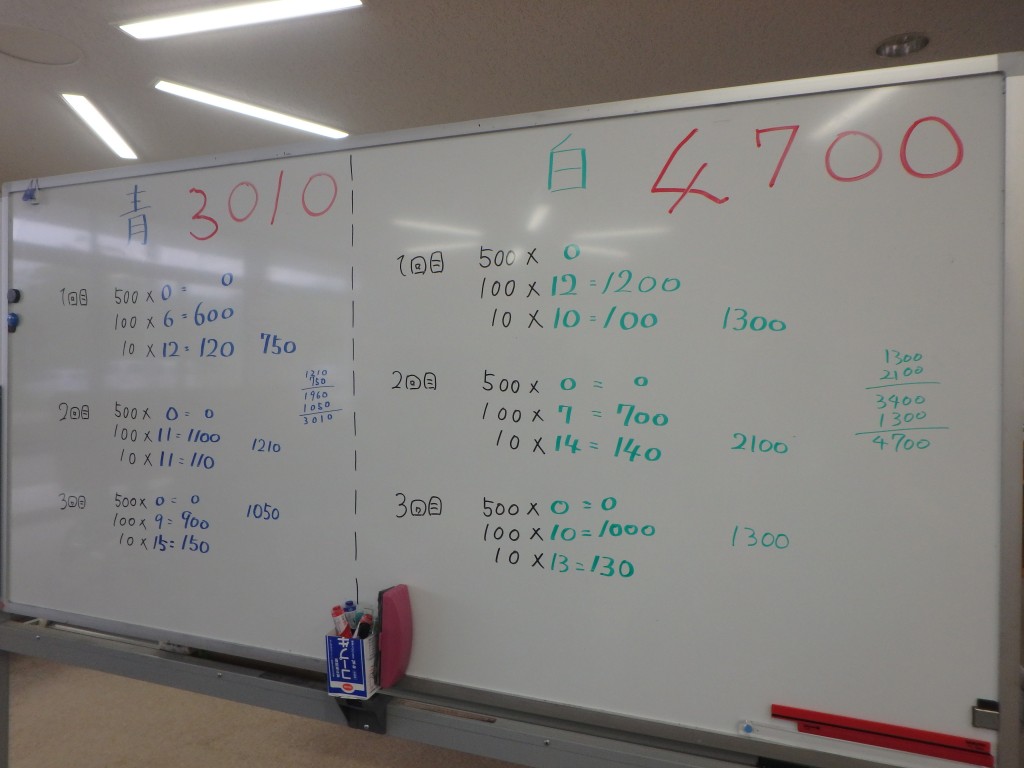 青 3010
1回目
500 × 0 = 0
100 × 6 = 600
10 × 12 = 120 750
1210
750
1960
1050
3010
2回目
500 × 0 = 0
100 × 11 = 1100
10 × 11 = 110
1210
3回目
500 × 0 = 0
100 × 9 = 900
10 × 15 = 150
1050
白 4700
1回目
500 × 0
100 × 12 = 1200
10 × 10 = 100 1300
2回目
500 × 0 = 0
100 × 7 = 700
10 × 14 = 140 2100
3回目
500 × 0 = 0
100 × 10 = 1000
10 × 13 = 130
1300
1300
2100
3400
1300
4700